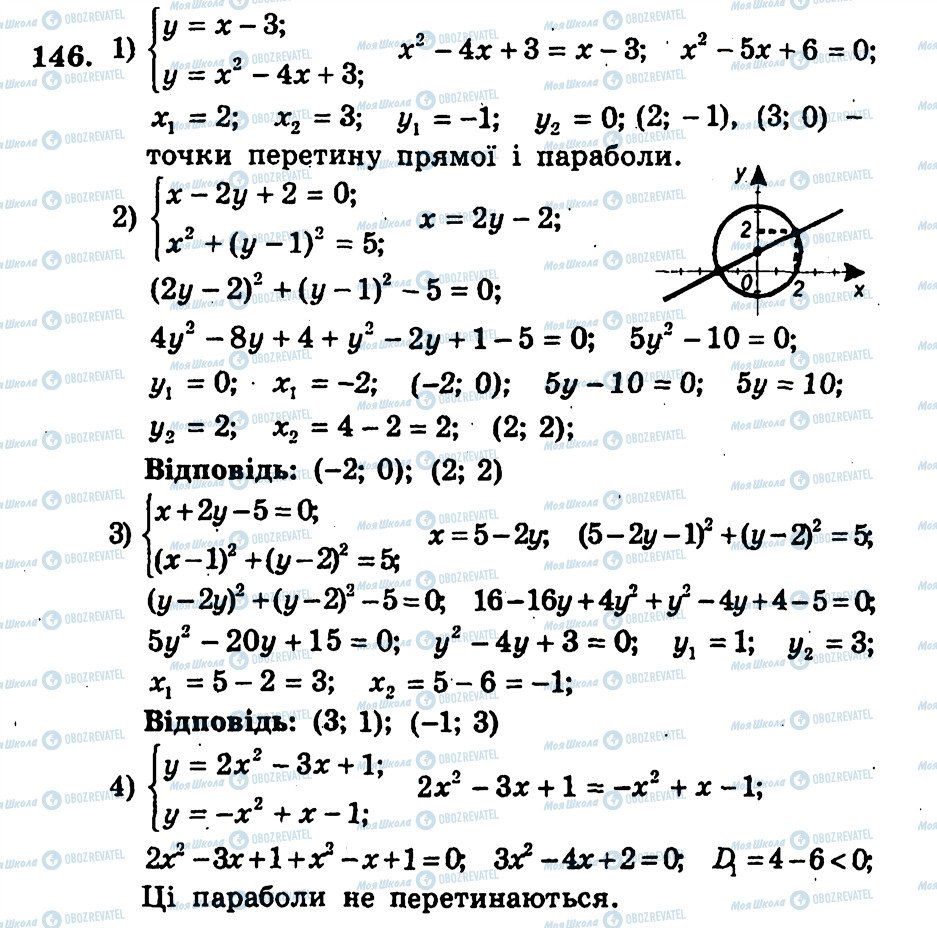 146. 1) { y = x − 3; y = x² − 4x + 3;   x² − 4x + 3 = x − 3;   x² − 5x + 6 = 0;
x₁ = 2;   x₂ = 3;   y₁ = −1;   y₂ = 0; (2; −1), (3; 0) –
точки перетину прямої і параболи.
2) { x − 2y + 2 = 0; x² + (y − 1)² = 5;   x = 2y − 2;
y
2
0
2
x
(2y − 2)² + (y − 1)² − 5 = 0;
4y² − 8y + 4 + y² − 2y + 1 − 5 = 0;   5y² − 10 = 0;
y₁ = 0;   x₁ = −2;   (−2; 0);   5y − 10 = 0;   5y = 10;
y₂ = 2;   x₂ = 4 − 2 = 2;   (2; 2);
Відповідь: (−2; 0); (2; 2)
3) { x + 2y − 5 = 0; (x − 1)² + (y − 2)² = 5;   x = 5 − 2y;   (5 − 2y − 1)² + (y − 2)² = 5;
(y − 2y)² + (y − 2)² − 5 = 0;   16 − 16y + 4y² + y² − 4y + 4 − 5 = 0;
5y² − 20y + 15 = 0;   y² − 4y + 3 = 0;   y₁ = 1;   y₂ = 3;
x₁ = 5 − 2 = 3;   x₂ = 5 − 6 = −1;
Відповідь: (3; 1); (−1; 3)
4) { y = 2x² − 3x + 1; y = −x² + x − 1;   2x² − 3x + 1 = −x² + x − 1;
2x² − 3x + 1 + x² − x + 1 = 0;   3x² − 4x + 2 = 0;   D₁ = 4 − 6 < 0;
Ці параболи не перетинаються.